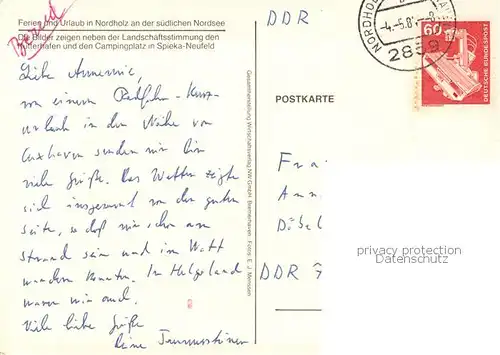 Ferien und Urlaub in Nordholz an der südlichen Nordsee
Die Bilder zeigen neben der Landschaftsstimmung den
Kutterhafen und den Campingplatz in Spieka-Neufeld
Liebe Annemie,
von einem Radfahr-Kurz-
urlaub in der Nähe von
Cuxhaven senden wir Dir
viele Grüße. Das Wetter zeigte
sich insgesamt von der guten
Seite, so daß wir schon am
Strand sein und im Watt
wandern konnten. In Helgoland
waren wir auch.
Viele liebe Grüße
Deine
Gesamtherstellung Wirtschaftsverlag NW GmbH, Bremerhaven
DDR
POSTKARTE
NORDHOLZ
-4.-5.8
2859
60
DEUTSCHE BUNDESPOST
Fra
Ann
Döbel
DDR 7
privacy protection
DATENSCHUTZ